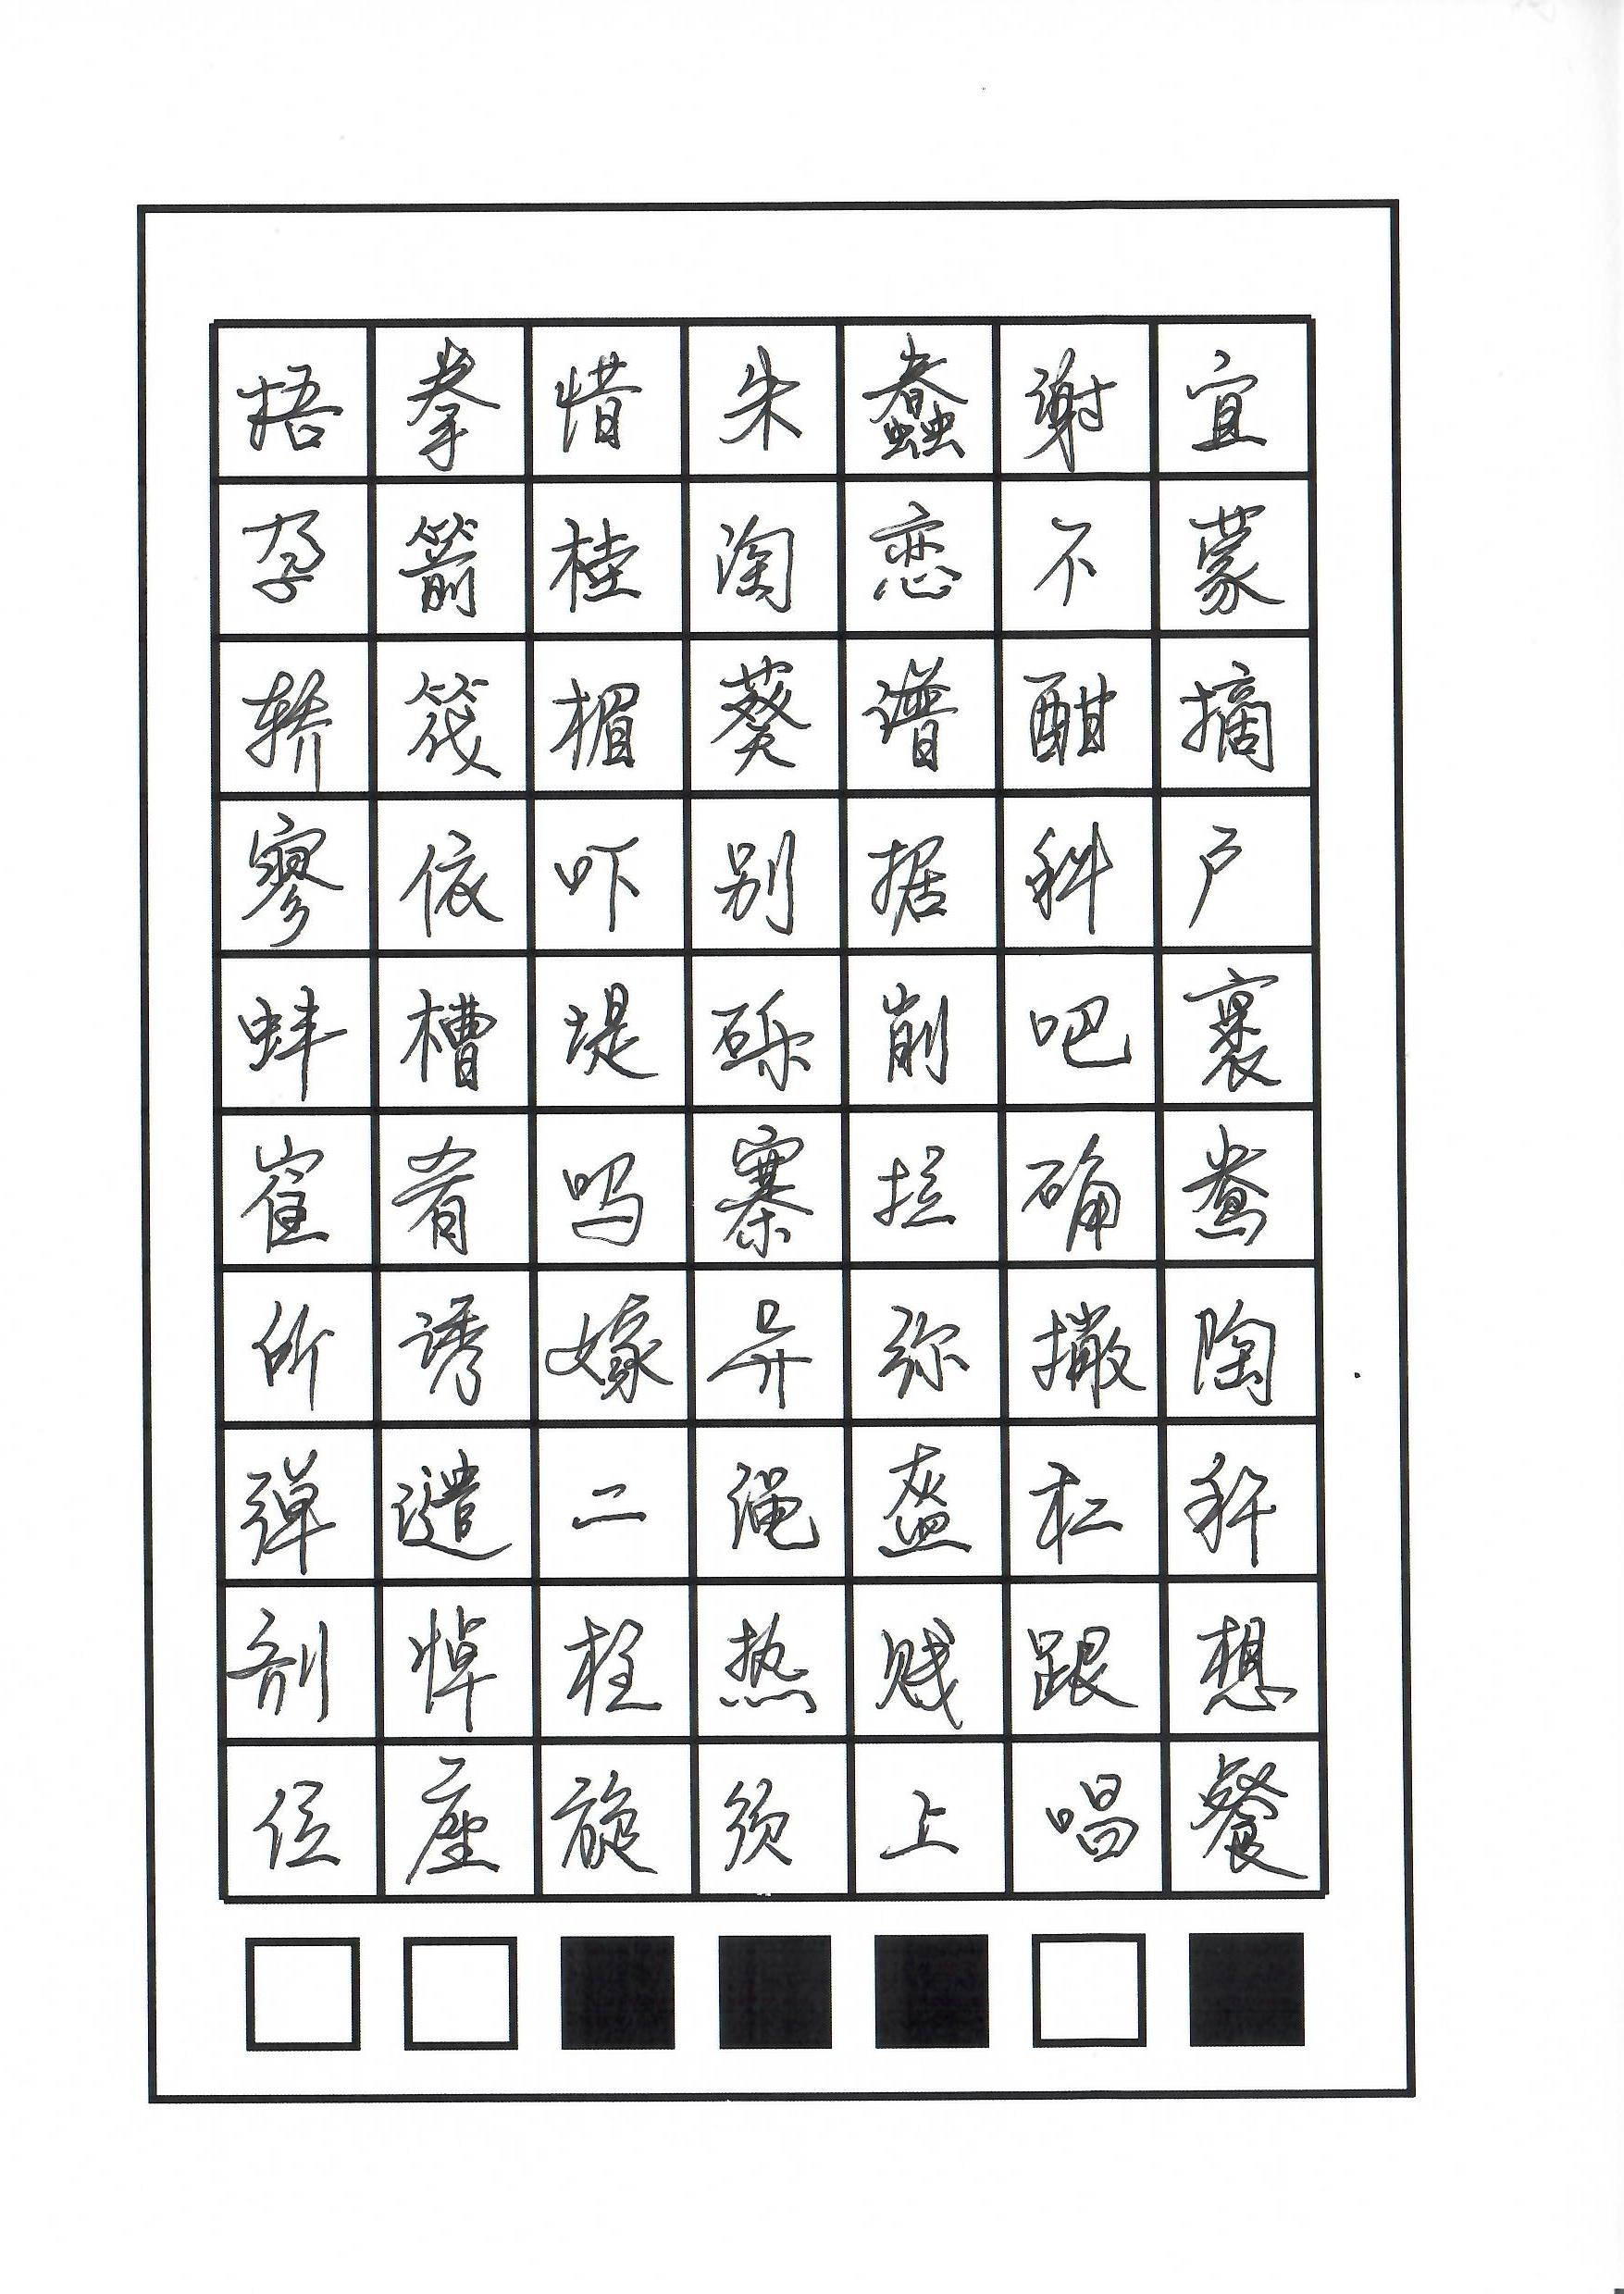 梧拳惜朱蠢谢宜
孕箭桂淘恋不蒙
轿筏楣葵谱酣摘
寥依吓别据科户
蚌槽堤砾削吧裹
崔肴吗寨拦确鸯
所诱嫁异弥撒陶
弹谴二绳盔杠秤
剂悼柱热贱跟想
位座旋须上唱餐